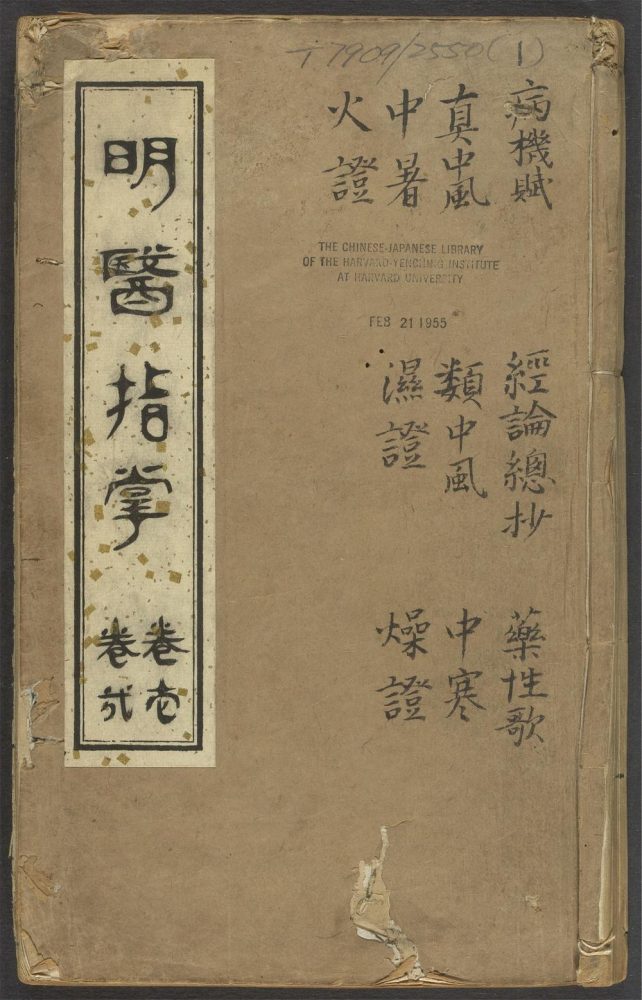 T7909/2550(1)
病機賦 經論總抄 藥性歌
真中風 類中風 中寒
中暑 濕證 燥證
火證
THE CHINESE-JAPANESE LIBRARY
OF THE HARVARD-YENCHING INSTITUTE
AT HARVARD UNIVERSITY
FEB 21 1955
明醫指掌
卷壱
卷弍